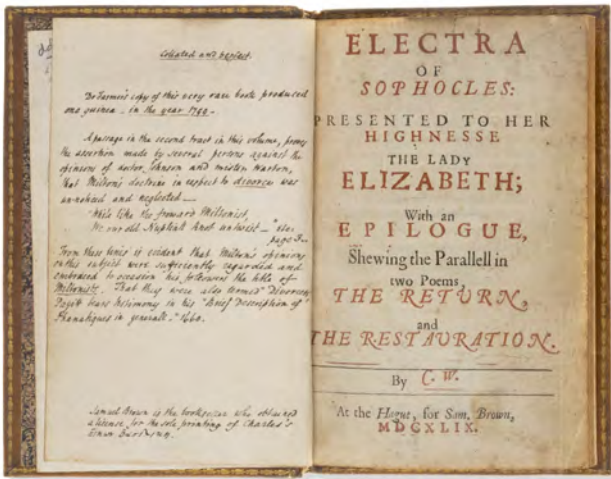 Collated and perfect.
Dr Farmer's copy of this very rare book produced
one guinea, in the year 1798.
A passage in the second tract in this volume, proves
the assertion made by several persons against the
opinions of doctor Johnson and master Warton,
that Milton's doctrine in respect to divorces was
un-noticed and neglected —
"While like the froward Miltonist,
We our old Nuptiall knot untwist — " &c.
page 3.
From these lines is evident that Milton's opinions
on this subject were sufficiently regarded and
embraced to occasion his followers the title of
Miltonists. That they were also termed "Divorcers"
Pagit bears testimony in his "Brief Description of
Phanatiques in generall." 1660.
Samuel Brown is the bookseller who obtained
a license, for the sole printing of Charles's
ELECTRA
OF
SOPHOCLES:
PRESENTED TO HER
HIGHNESSE
THE LADY
ELIZABETH;
With an
EPILOGUE,
Shewing the Parallell in
two Poems,
THE RETURN,
and
THE RESTAURATION.
By C. W.
At the Hague, for Sam. Brown,
MDCXLIX.